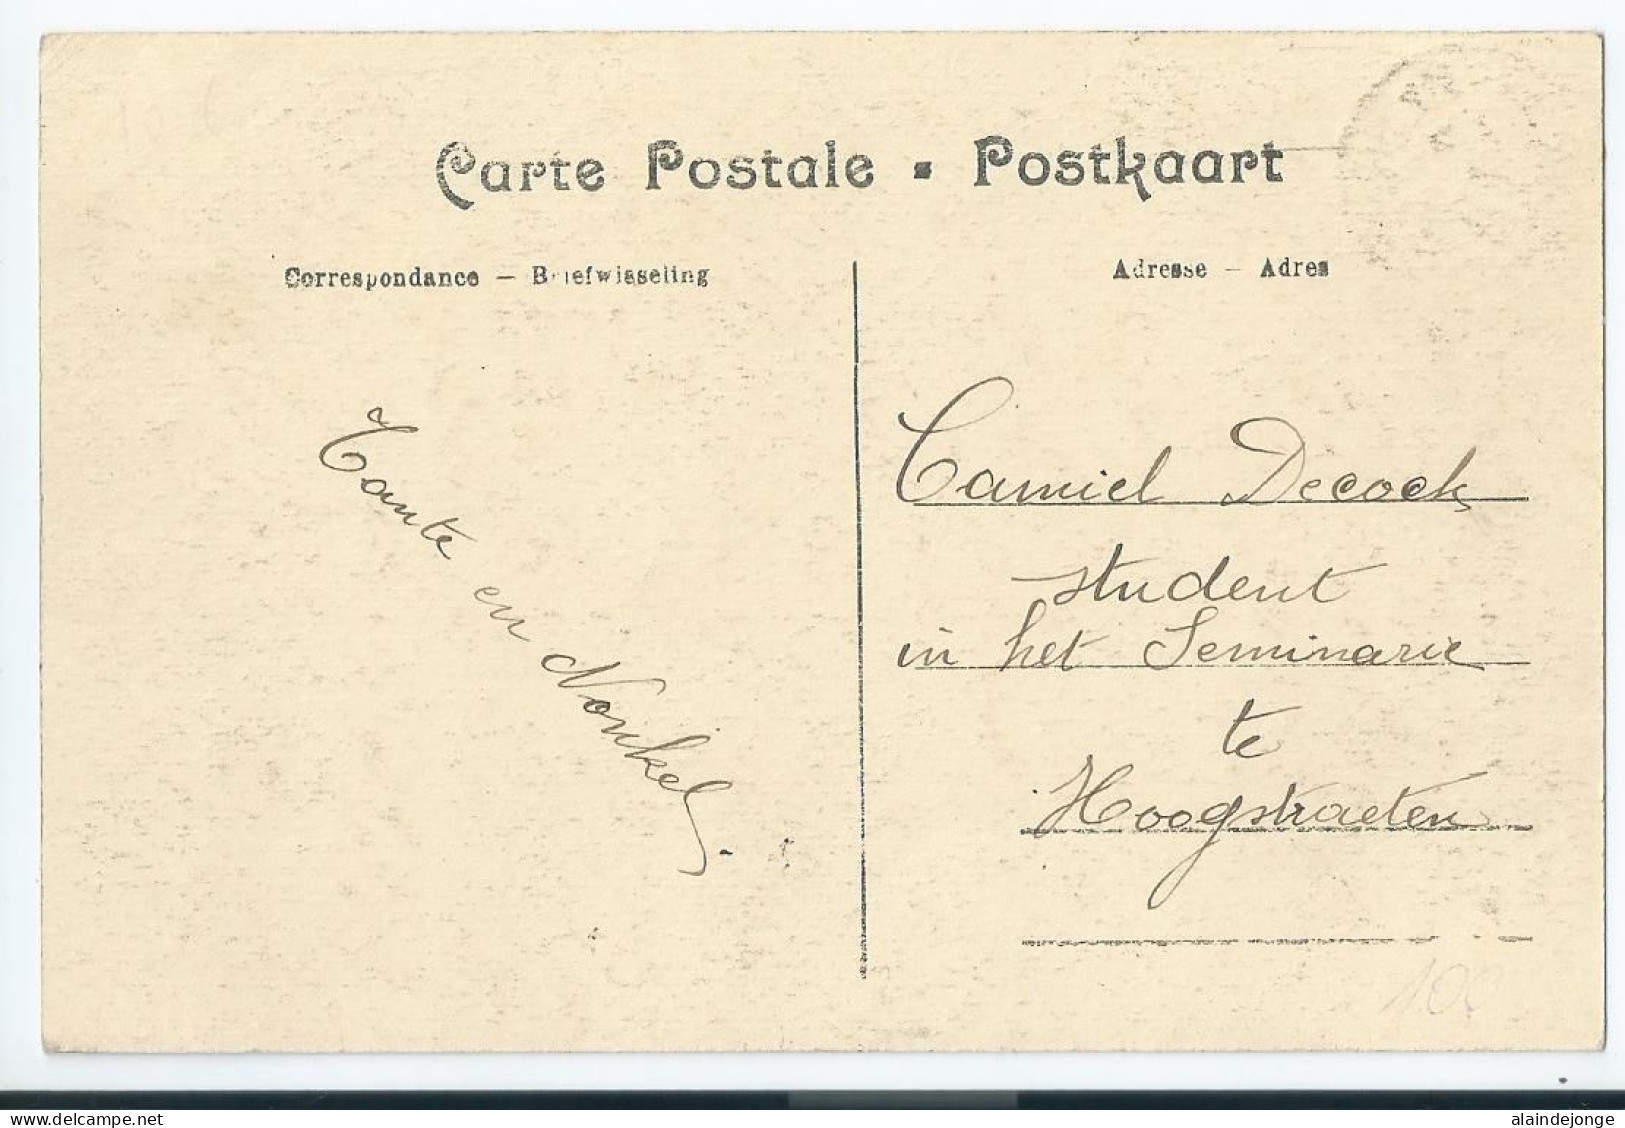 Carte Postale - Postkaart
Correspondance — Briefwisseling
Adresse — Adres
Tante en Nonkel.
Camiel Decock
student
in het Seminarie
te
Hoogstraeten
100
www.delcampe.net
alaindejonge